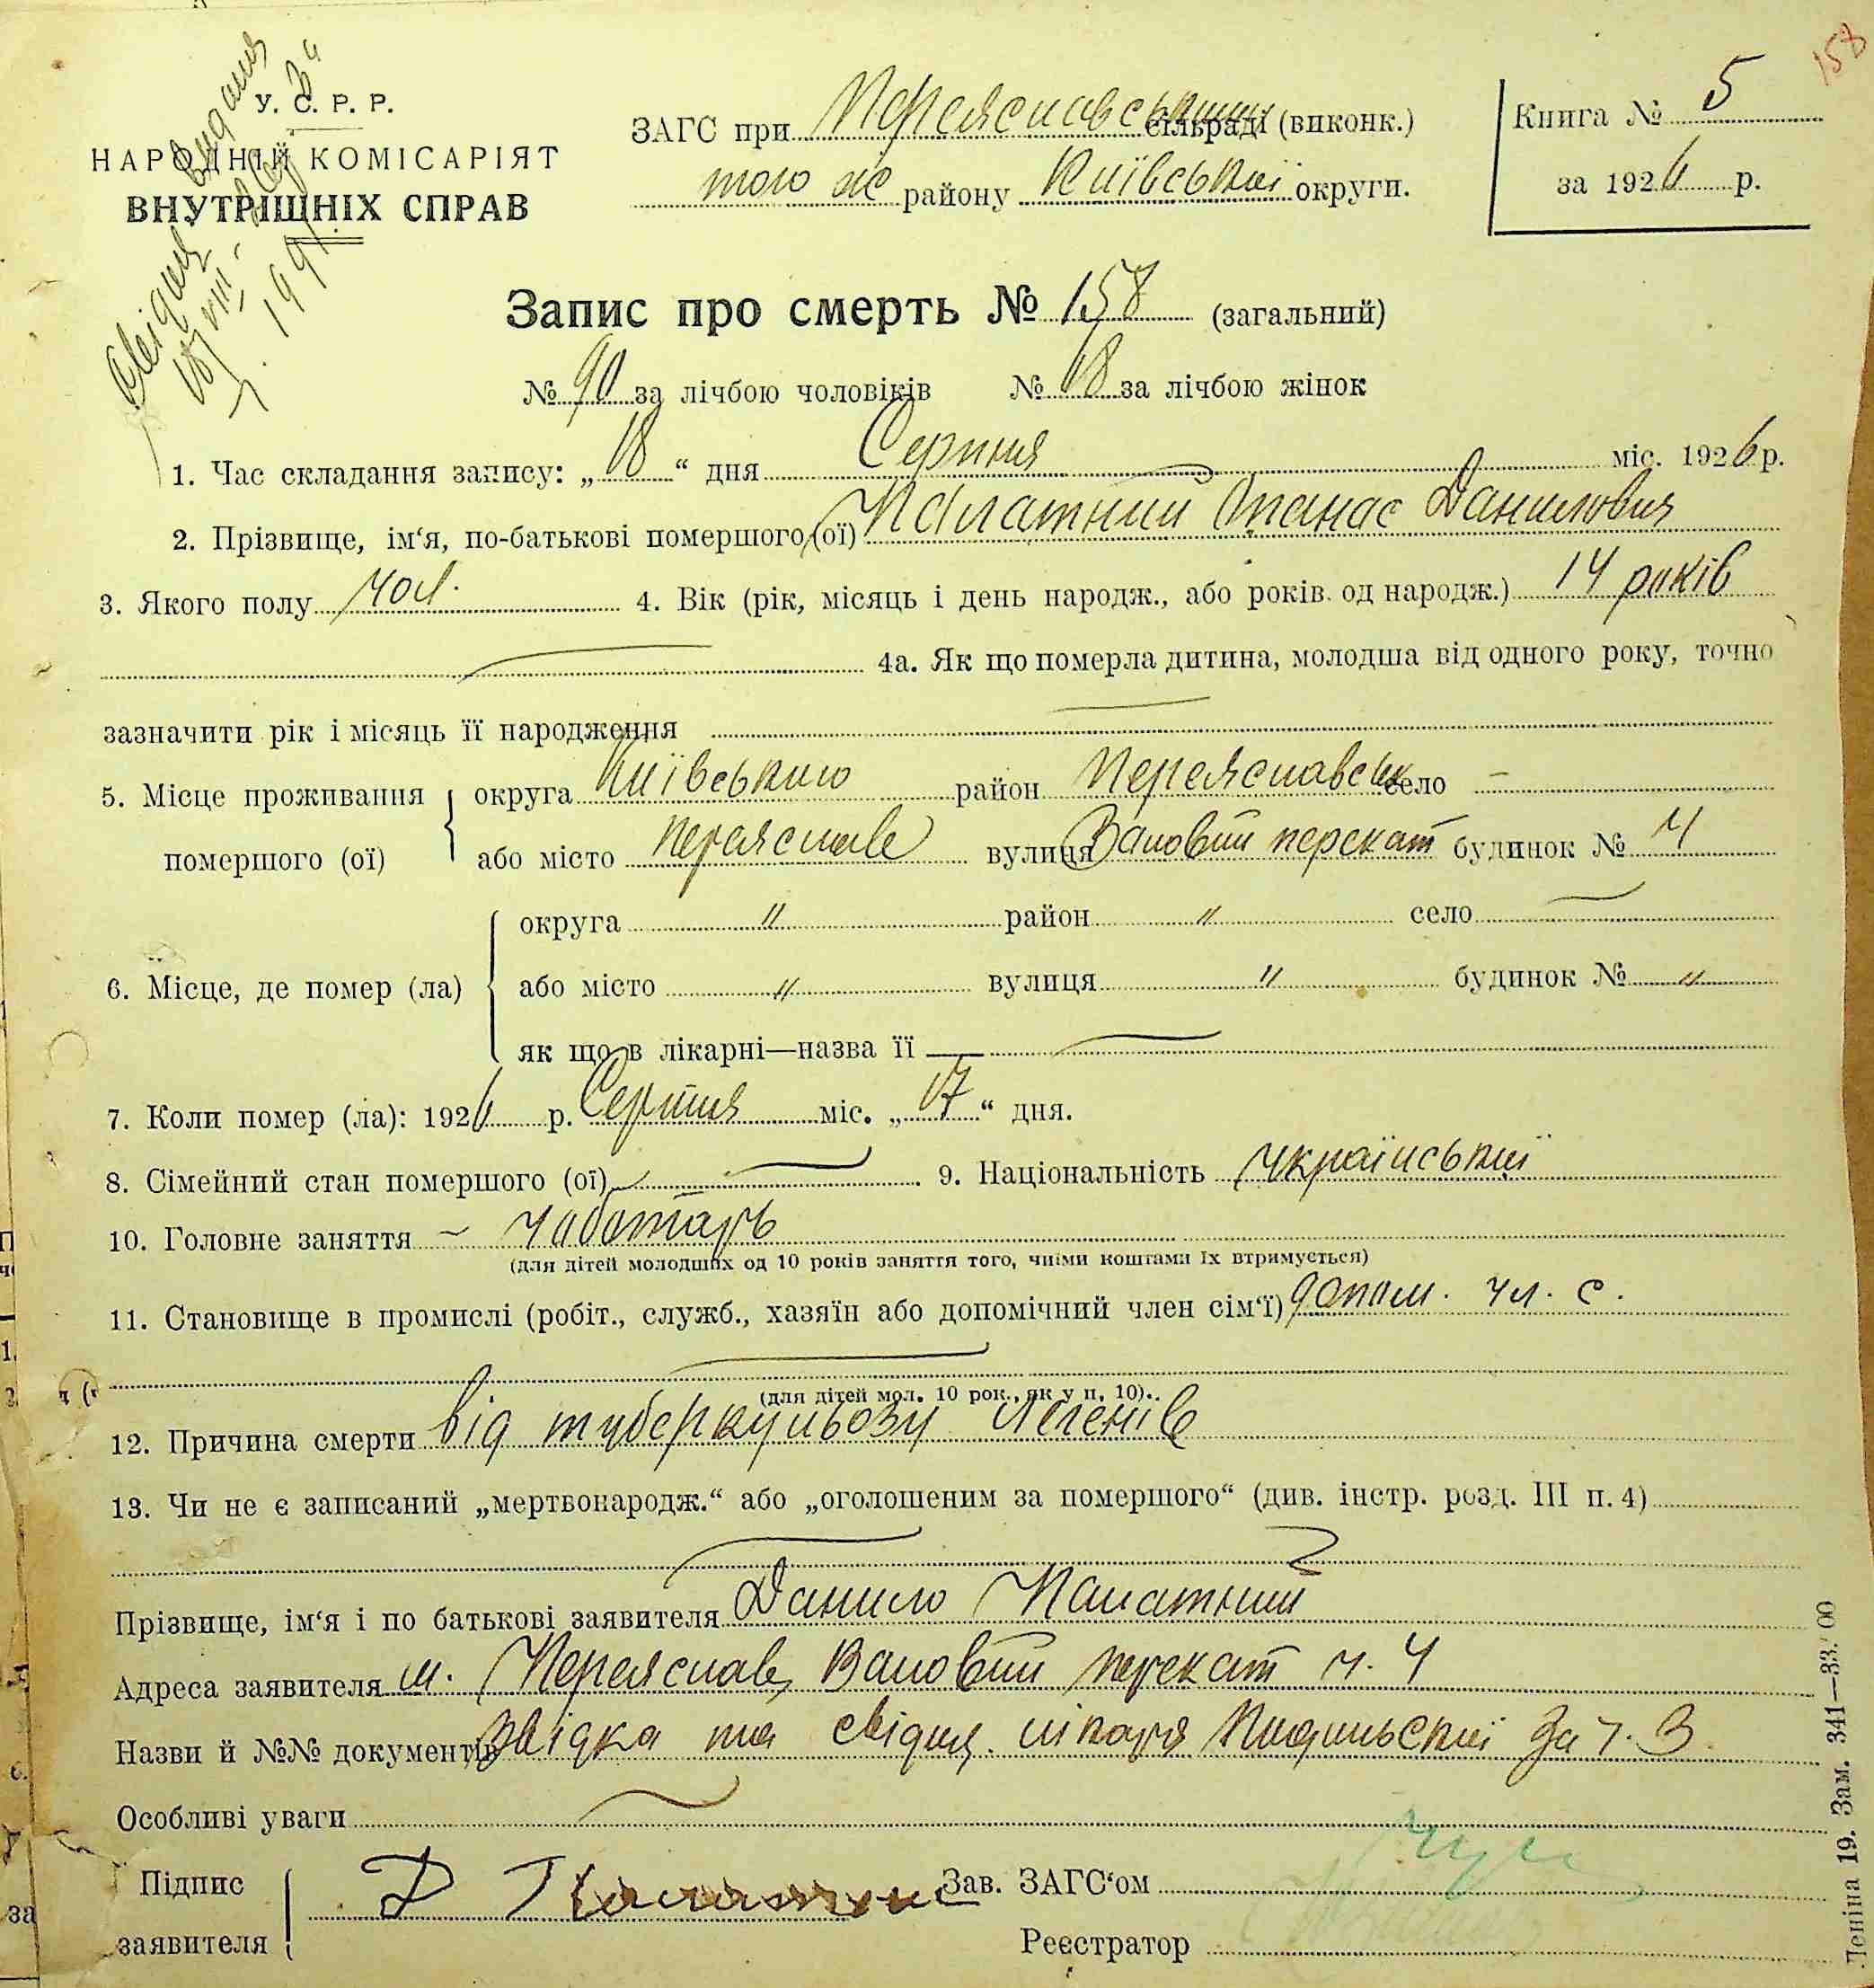 158
У. С. Р. Р.
НАРОДНІЙ КОМІСАРІЯТ
ВНУТРІШНІХ СПРАВ
ЗАГС при Переяславським сільраді (виконк.)
того ж району Київської округи.
Книга № 5
за 1926 р.
Запис про смерть № 158 (загальний)
№ 90 за лічбою чоловіків № 68 за лічбою жінок
1. Час складання запису: „18“ дня Серпня міс. 1926 р.
2. Прізвище, ім‘я, по-батькові помершого (ої) Палатний Опанас Данилович
3. Якого полу чол. 4. Вік (рік, місяць і день народж., або років од народж.) 14 років
4а. Як що померла дитина, молодша від одного року, точно
зазначити рік і місяць її народження
5. Місце проживання помершого (ої) округа Київського район Переяславськ село —
або місто Переяслав вулиця Валовий перекат будинок № 4
6. Місце, де помер (ла) округа " район " село
або місто " вулиця " будинок № "
як що в лікарні—назва її
7. Коли помер (ла): 1926 р. Серпня міс. „17“ дня.
8. Сімейний стан помершого (ої) 9. Національність український
10. Головне заняття — чоботарь
(для дітей молодших од 10 років заняття того, чиїми коштами їх втримується)
11. Становище в промислі (робіт., служб., хазяїн або допомічний член сім‘ї) допом. чл. с.
(для дітей мол. 10 рок., як у п. 10).
12. Причина смерти від туберкульозу легенів
13. Чи не є записаний „мертвонародж.“ або „оголошеним за помершого“ (див. інстр. розд. III п. 4)
Прізвище, ім‘я і по батькові заявителя Данило Палатний
Адреса заявителя м. Переяслав, Валовий перекат ч. 4
Назви й №№ документів звідка та свідця. лікаря за ч. 3
Особливі уваги
Підпис заявителя Д Палатни
Зав. ЗАГС‘ом
Реєстратор
Леніна 19. Зам. 341—33.000